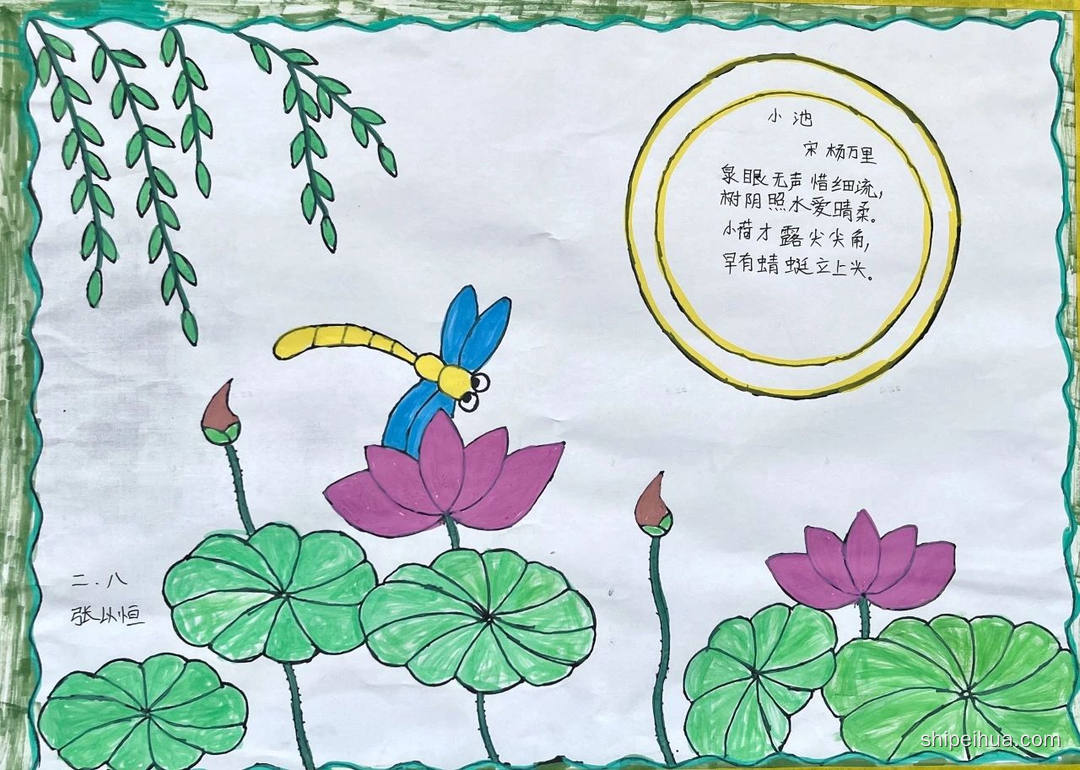 小池
宋 杨万里
泉眼无声惜细流,
树阴照水爱晴柔。
小荷才露尖尖角,
早有蜻蜓立上头。
二.八
张以恒
shipeihua.com